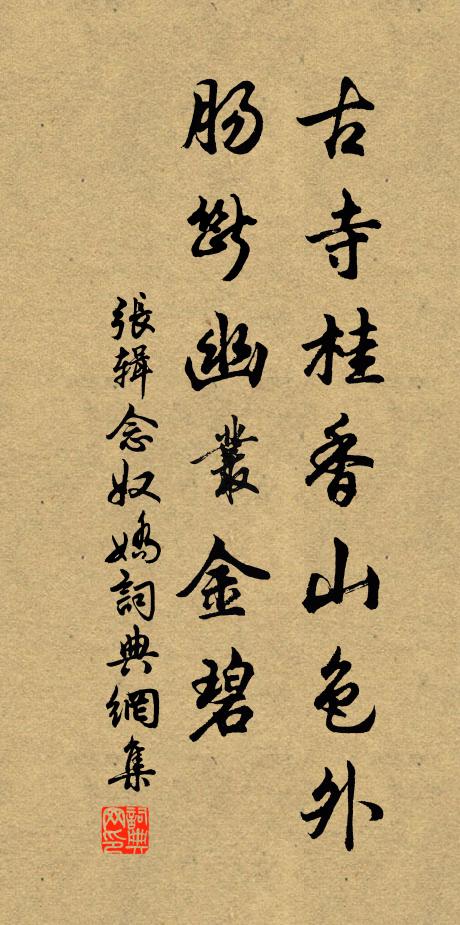 古寺桂香山色外
肠斷幽叢金碧
張辑念奴嬌詞典網集
詞典网印